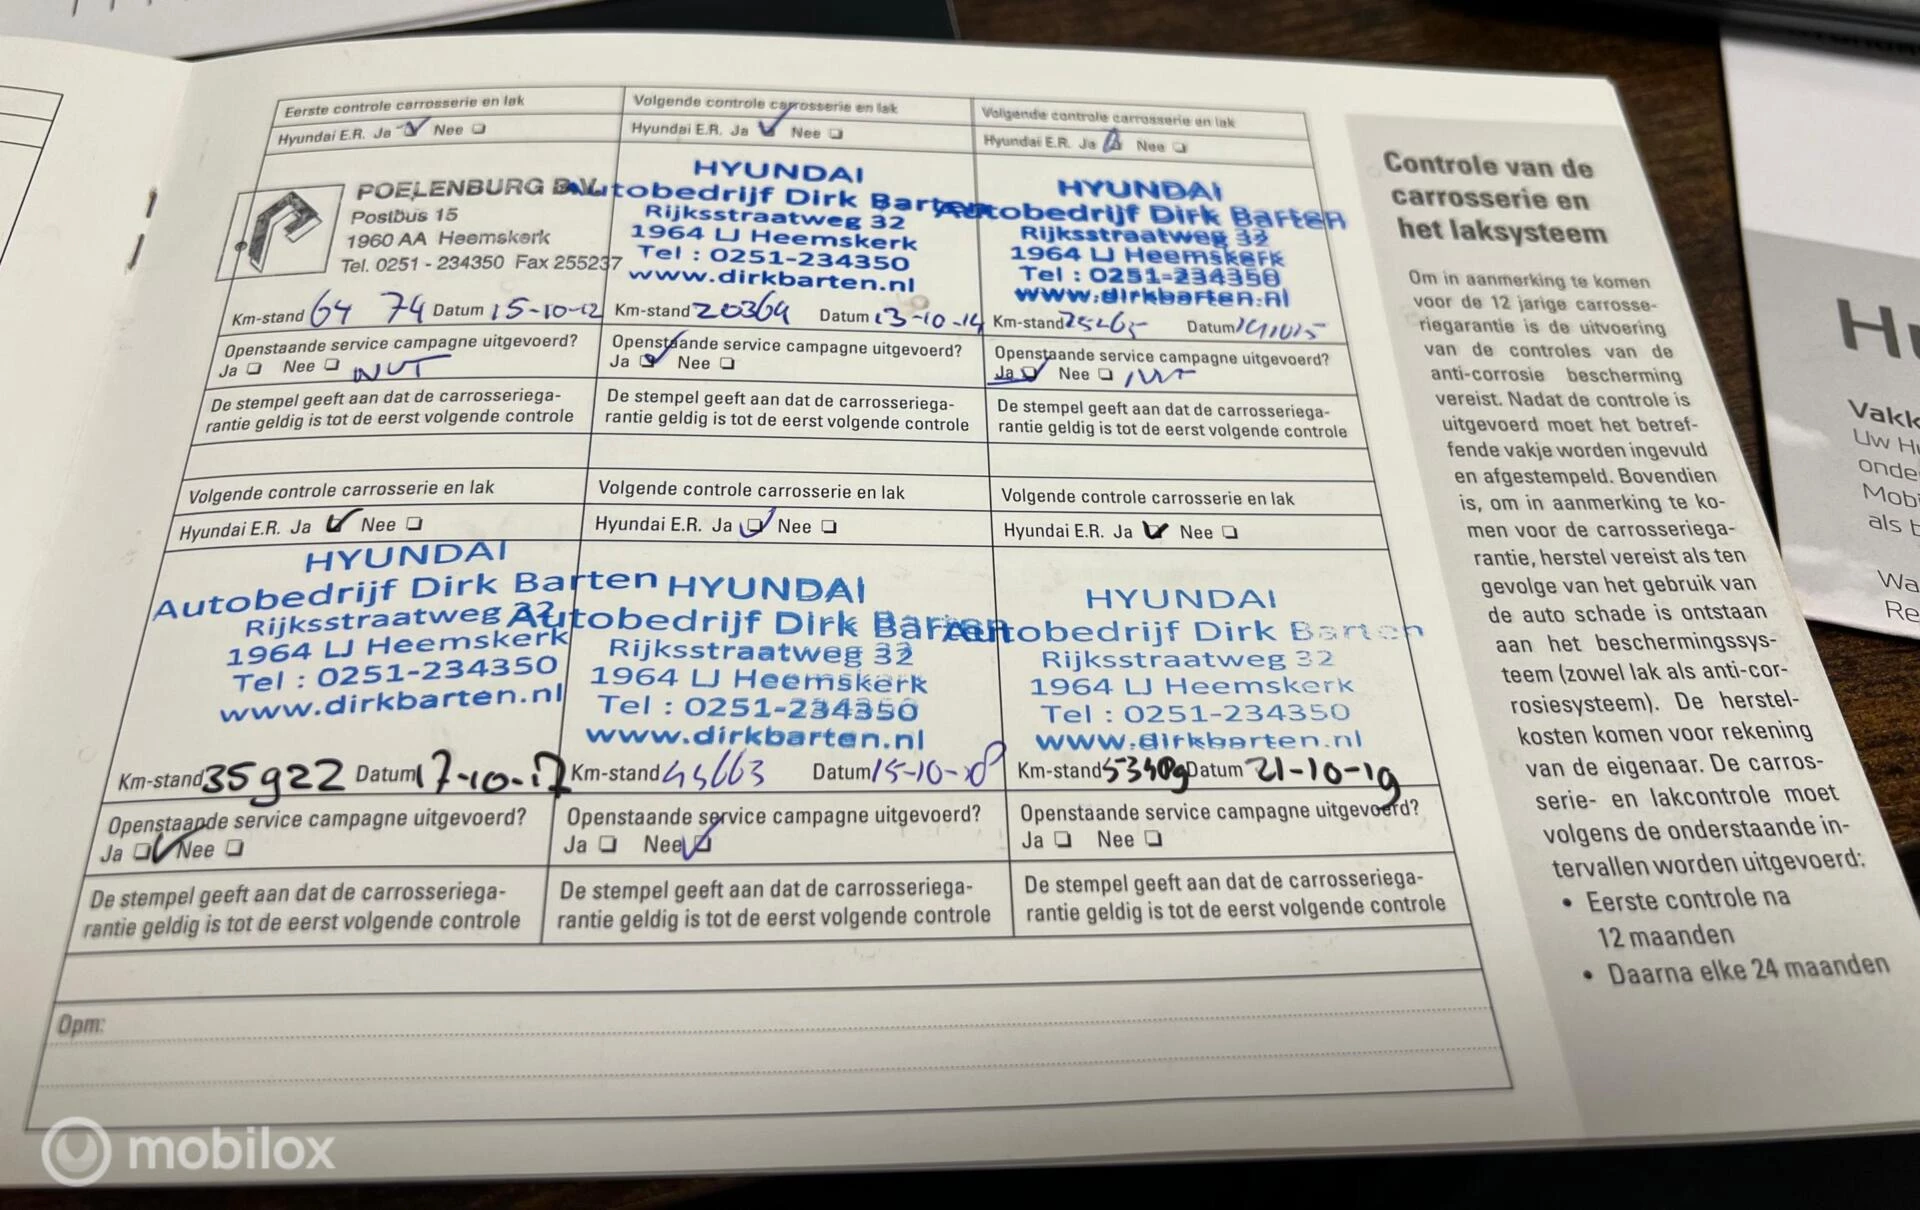 Eerste controle carrosserie en lak
Hyundai E.R. Ja Nee
POELENBURG B.V.
Postbus 15
1960 AA Heemskerk
Tel. 0251 - 234350 Fax 255237
Km-stand 64 74 Datum 15-10-12
Openstaande service campagne uitgevoerd?
Ja Nee NVT
De stempel geeft aan dat de carrosseriega-
rantie geldig is tot de eerst volgende controle
Volgende controle carrosserie en lak
Hyundai E.R. Ja Nee
HYUNDAI
Autobedrijf Dirk Barten
Rijksstraatweg 32
1964 LJ Heemskerk
Tel : 0251-234350
www.dirkbarten.nl
Km-stand 20369 Datum 13-10-14
Openstaande service campagne uitgevoerd?
Ja Nee
De stempel geeft aan dat de carrosseriega-
rantie geldig is tot de eerst volgende controle
Volgende controle carrosserie en lak
Hyundai E.R. Ja Nee
HYUNDAI
Autobedrijf Dirk Barten
Rijksstraatweg 32
1964 LJ Heemskerk
Tel : 0251-234350
www.dirkbarten.nl
Km-stand Datum
Openstaande service campagne uitgevoerd?
Ja Nee NVT
De stempel geeft aan dat de carrosseriega-
rantie geldig is tot de eerst volgende controle
Volgende controle carrosserie en lak
Hyundai E.R. Ja Nee
HYUNDAI
Autobedrijf Dirk Barten
Rijksstraatweg 32
1964 LJ Heemskerk
Tel : 0251-234350
www.dirkbarten.nl
Km-stand 35922 Datum 17-10-17
Openstaande service campagne uitgevoerd?
Ja Nee
De stempel geeft aan dat de carrosseriega-
rantie geldig is tot de eerst volgende controle
Volgende controle carrosserie en lak
Hyundai E.R. Ja Nee
HYUNDAI
Autobedrijf Dirk Barten
Rijksstraatweg 32
1964 LJ Heemskerk
Tel : 0251-234350
www.dirkbarten.nl
Km-stand Datum
Openstaande service campagne uitgevoerd?
Ja Nee
De stempel geeft aan dat de carrosseriega-
rantie geldig is tot de eerst volgende controle
Volgende controle carrosserie en lak
Hyundai E.R. Ja Nee
HYUNDAI
Autobedrijf Dirk Barten
Rijksstraatweg 32
1964 LJ Heemskerk
Tel : 0251-234350
www.dirkbarten.nl
Km-stand Datum 21-10-19
Openstaande service campagne uitgevoerd?
Ja Nee
De stempel geeft aan dat de carrosseriega-
rantie geldig is tot de eerst volgende controle
Opm:
Controle van de
carrosserie en
het laksysteem
Om in aanmerking te komen
voor de 12 jarige carrosse-
riegarantie is de uitvoering
van de controles van de
anti-corrosie bescherming
vereist. Nadat de controle is
uitgevoerd moet het betref-
fende vakje worden ingevuld
en afgestempeld. Bovendien
is, om in aanmerking te ko-
men voor de carrosseriega-
rantie, herstel vereist als ten
gevolge van het gebruik van
de auto schade is ontstaan
aan het beschermingssys-
teem (zowel lak als anti-cor-
rosiesysteem). De herstel-
kosten komen voor rekening
van de eigenaar. De carros-
serie- en lakcontrole moet
volgens de onderstaande in-
tervallen worden uitgevoerd:
• Eerste controle na
12 maanden
• Daarna elke 24 maanden
Vakk
Uw H
onde
Mobi
als b
Wa
Re
mobilox